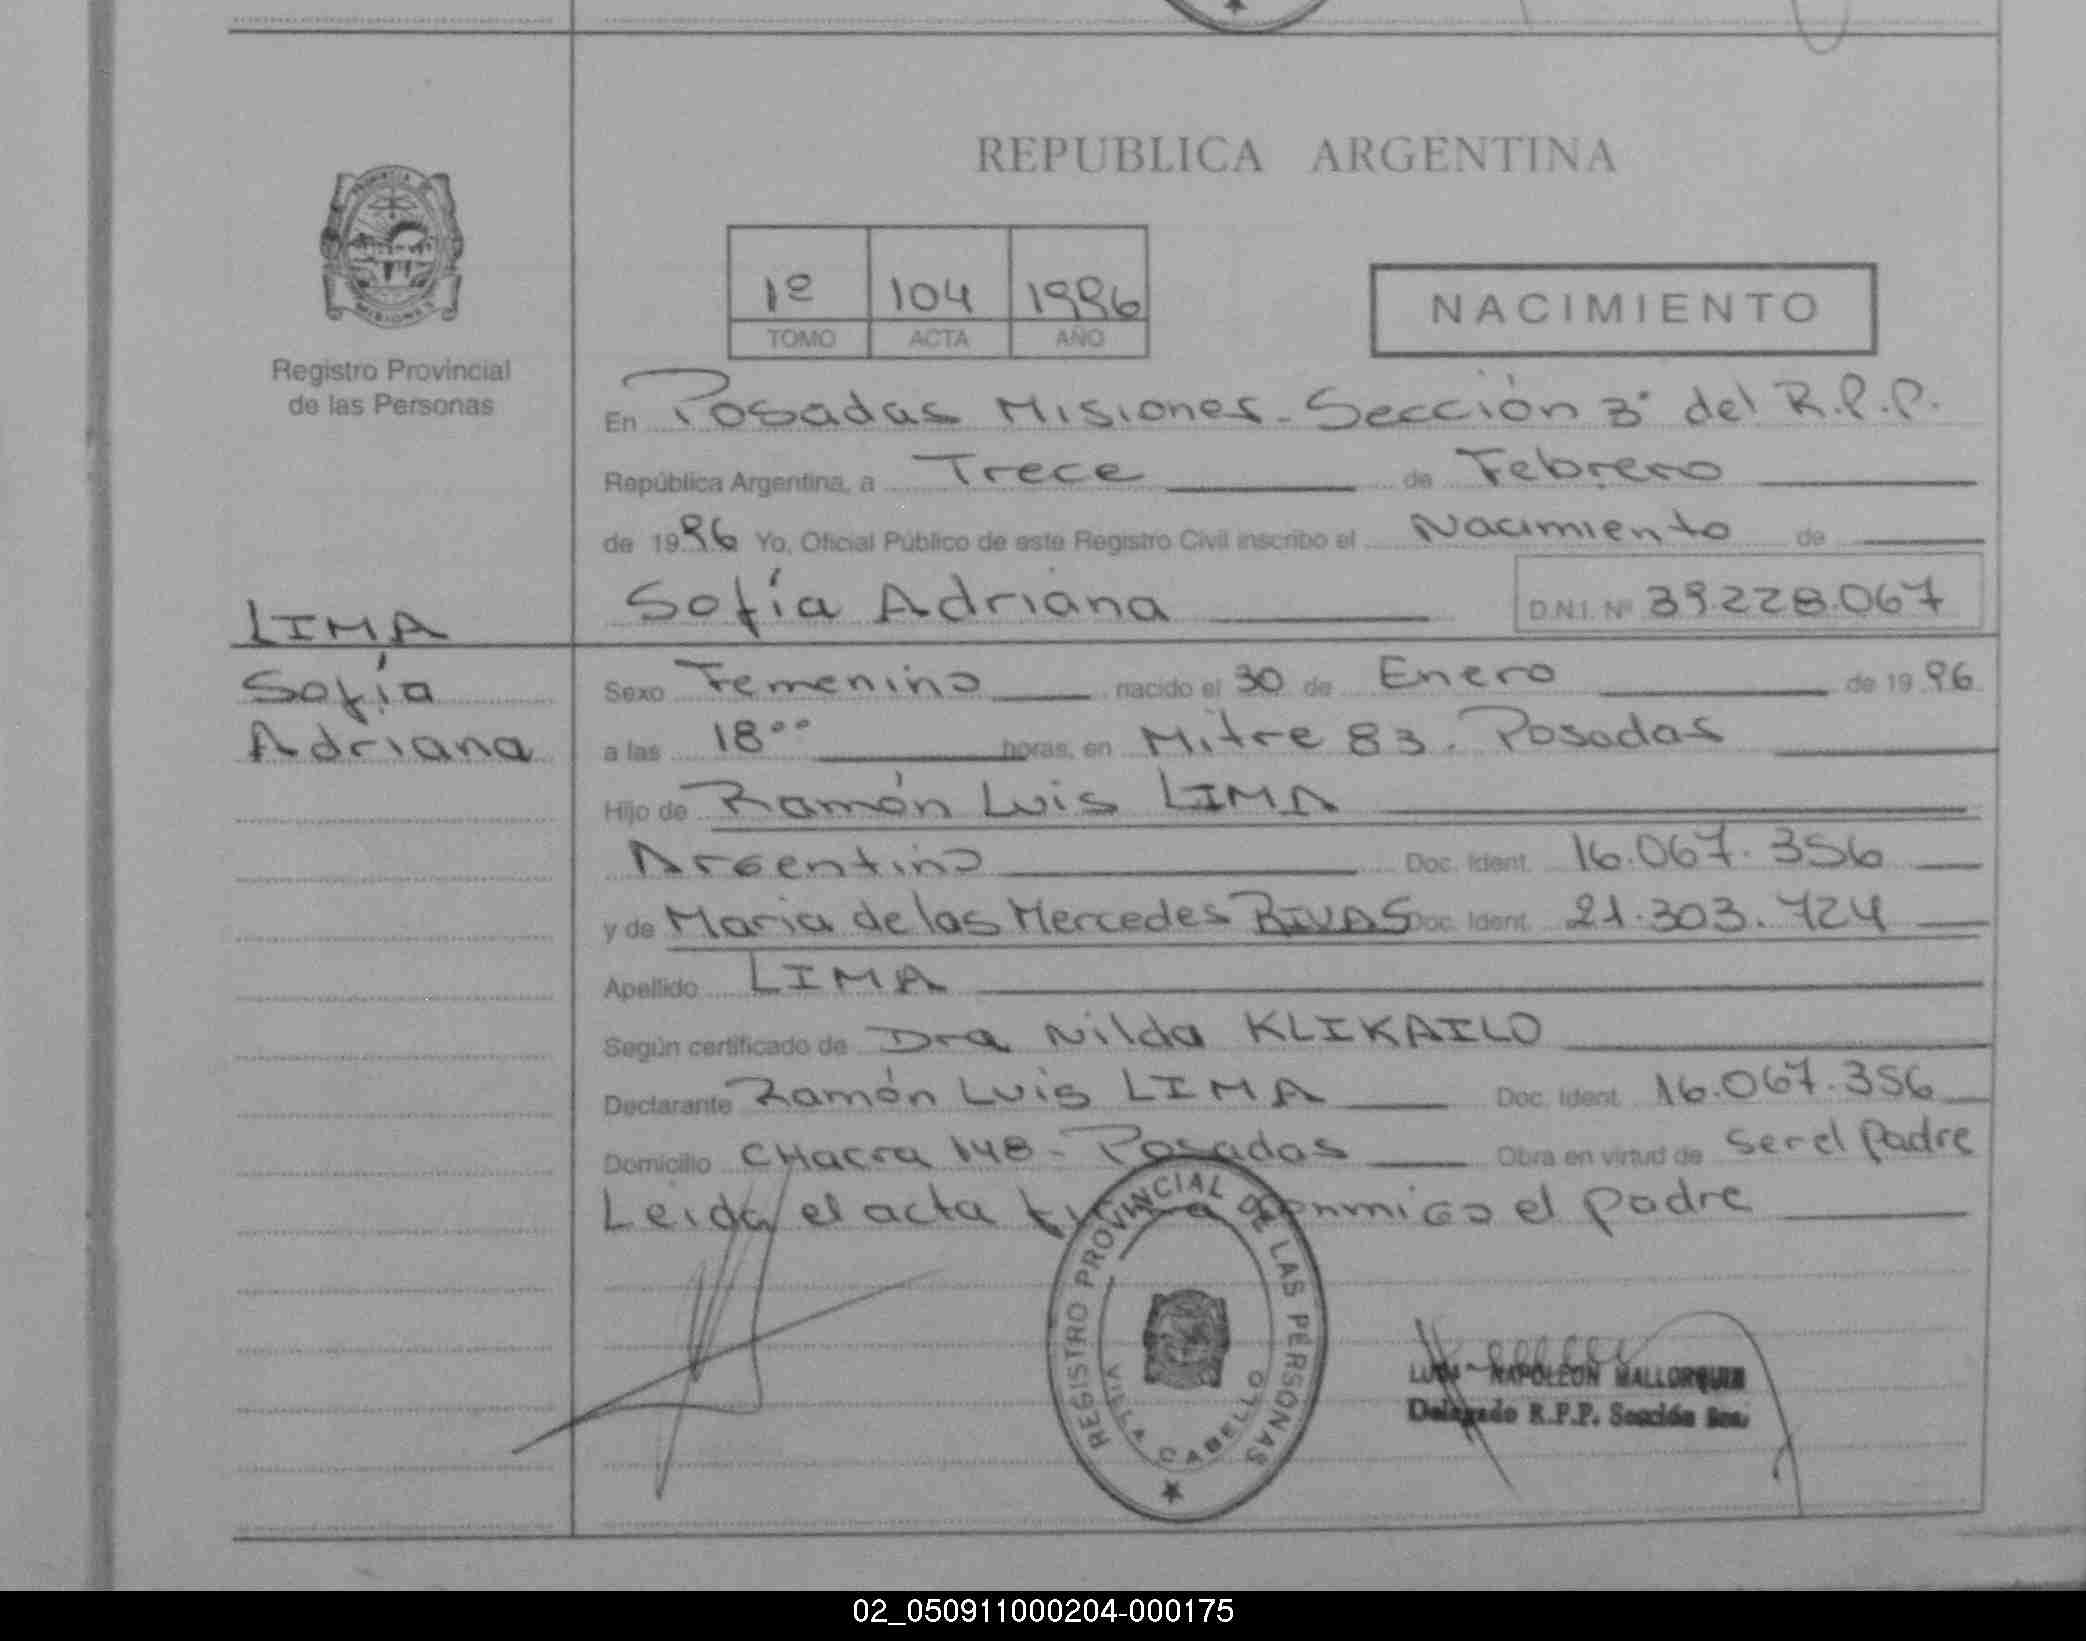 REPUBLICA ARGENTINA
PROVINCIA DE
MISIONES
Registro Provincial
de las Personas
1º 104 1996
TOMO ACTA AÑO
NACIMIENTO
En Posadas Misiones - Sección 3ª del R.P.P.
República Argentina, a Trece de Febrero
de 1996 Yo, Oficial Público de este Registro Civil inscribo el Nacimiento de
Sofía Adriana D.N.I. Nº 39.228.067
LIMA
Sofía
Adriana
Sexo Femenino nacido el 30 de Enero de 1996
a las 18ºº horas, en Mitre 83. Posadas
Hijo de Ramón Luis LIMA
Argentino Doc. Ident. 16.067.356
y de Maria de las Mercedes RIVAS Doc. Ident. 21.303.724
Apellido LIMA
Según certificado de Dra Nilda KLIKAILO
Declarante Ramón Luis LIMA Doc. Ident. 16.067.356
Domicilio CHacra 148 - Posadas Obra en virtud de ser el Padre
Leida el acta firma conmigo el padre
REGISTRO PROVINCIAL DE LAS PERSONAS
VILLA CABELLO
NAPOLEON MALLORQUIN
Delegado R.P.P. Sección 3ra.
02_050911000204-000175